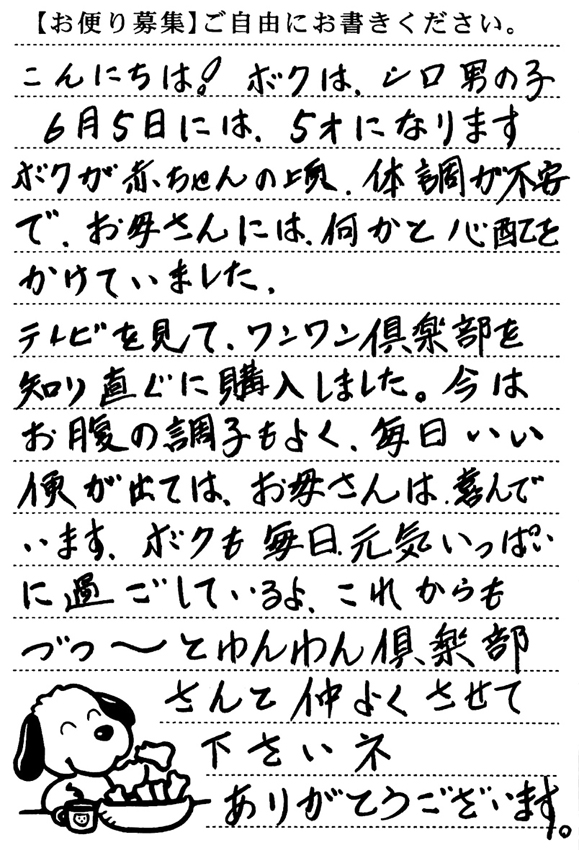 【お便り募集】ご自由にお書きください。
こんにちは! ボクは、シロ男の子
6月5日には、5才になります
ボクが赤ちゃんの頃、体調が不安
で、お母さんには、何かと心配を
かけていました。
テレビを見て、ワンワン倶楽部を
知り直ぐに購入しました。今は
お腹の調子もよく、毎日いい
便が出ては、お母さんは、喜んで
います。ボクも毎日、元気いっぱい
に過ごしているよ、これからも
づっ〜とわんわん倶楽部
さんと仲よくさせて
下さいネ
ありがとうございます。